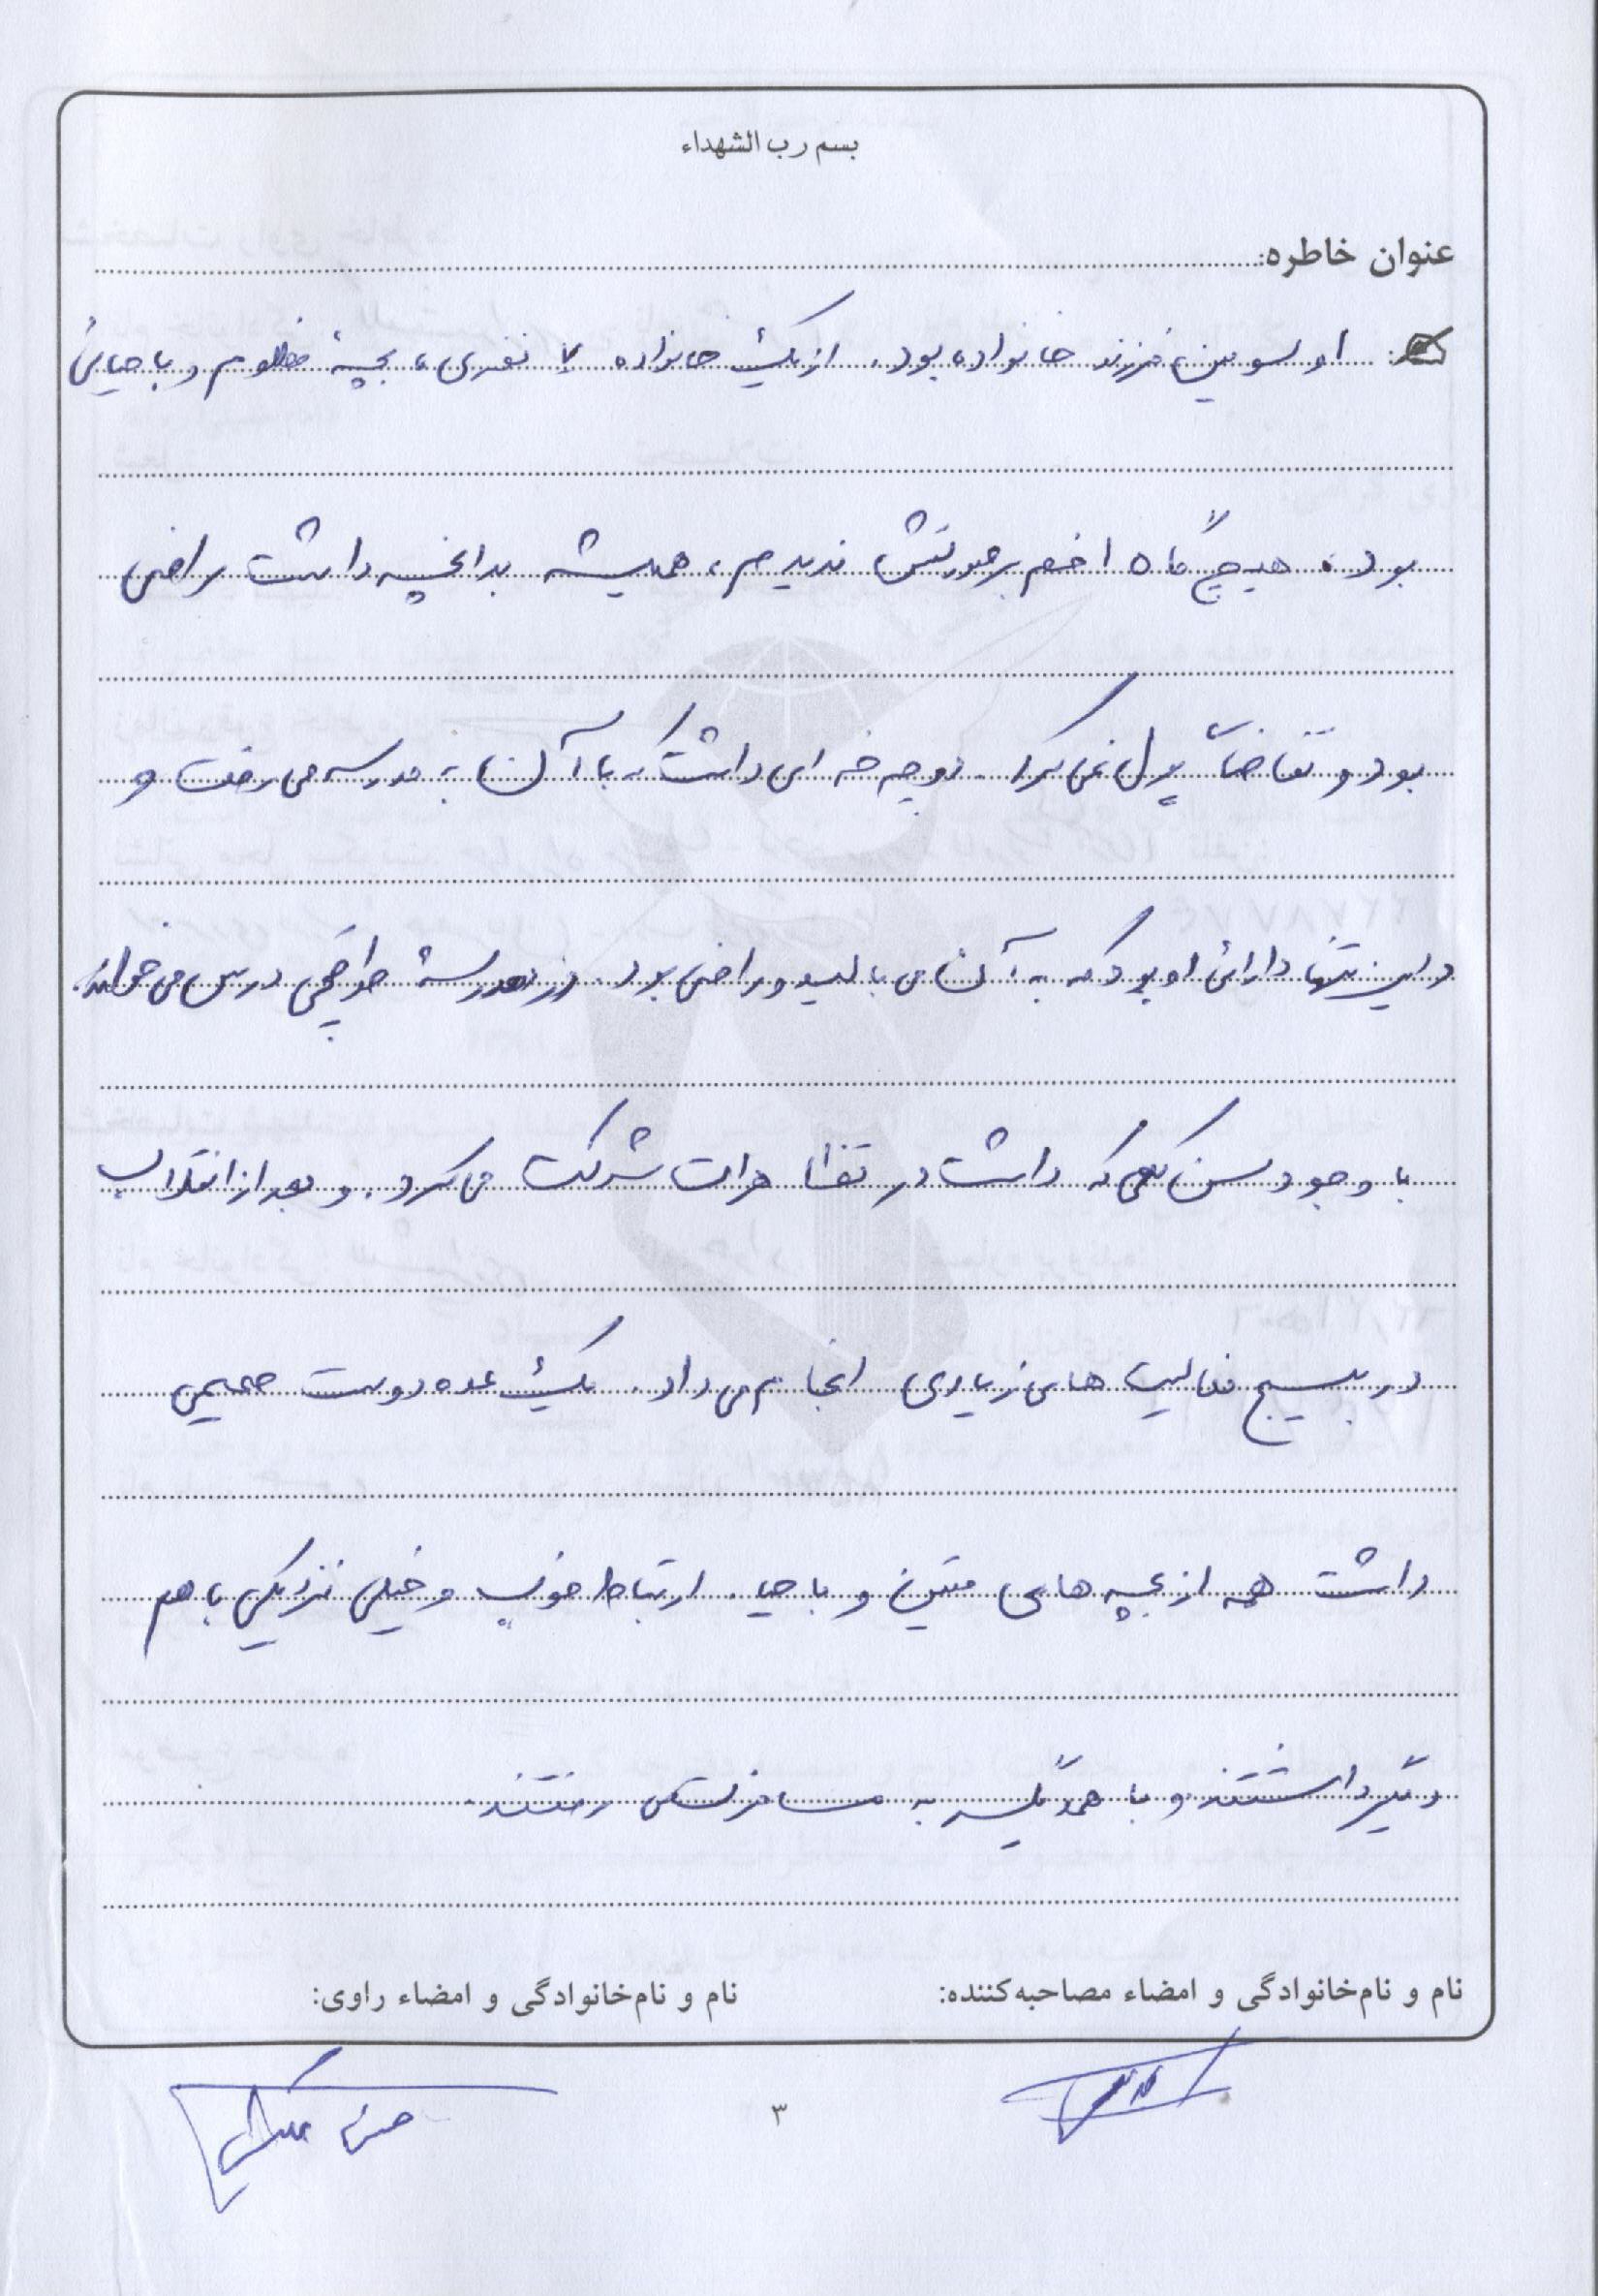 بسم رب الشهداء
عنوان خاطره:
او سومین فرزند خانواده بود. از یک خانواده ۷ نفری، بچهٔ مظلوم و با حیائی
بود. هیچ گاه اخم بر صورتش ندیدم، همیشه بدانچه داشت راضی
بود و تقاضای پول نمی کرد. دوچرخه ای داشت که با آن به مدرسه می رفت و
و این تنها دارائی او بود که به آن می بالید و راضی بود. در مدرسهٔ درس می خواند.
با وجود سن کمی که داشت در تظاهرات شرکت می کرد. و بعد از انقلاب
در بسیج فعالیت های زیادی انجام می داد. یک عده دوست صمیمی
داشت همه از بچه های متین و با حیا. ارتباط خوب و خیلی نزدیکی با هم
دیگر داشتند و با همدیگر به مسافرت می رفتند.
نام و نام‌خانوادگی و امضاء مصاحبه‌کننده:
نام و نام‌خانوادگی و امضاء راوی:
۳